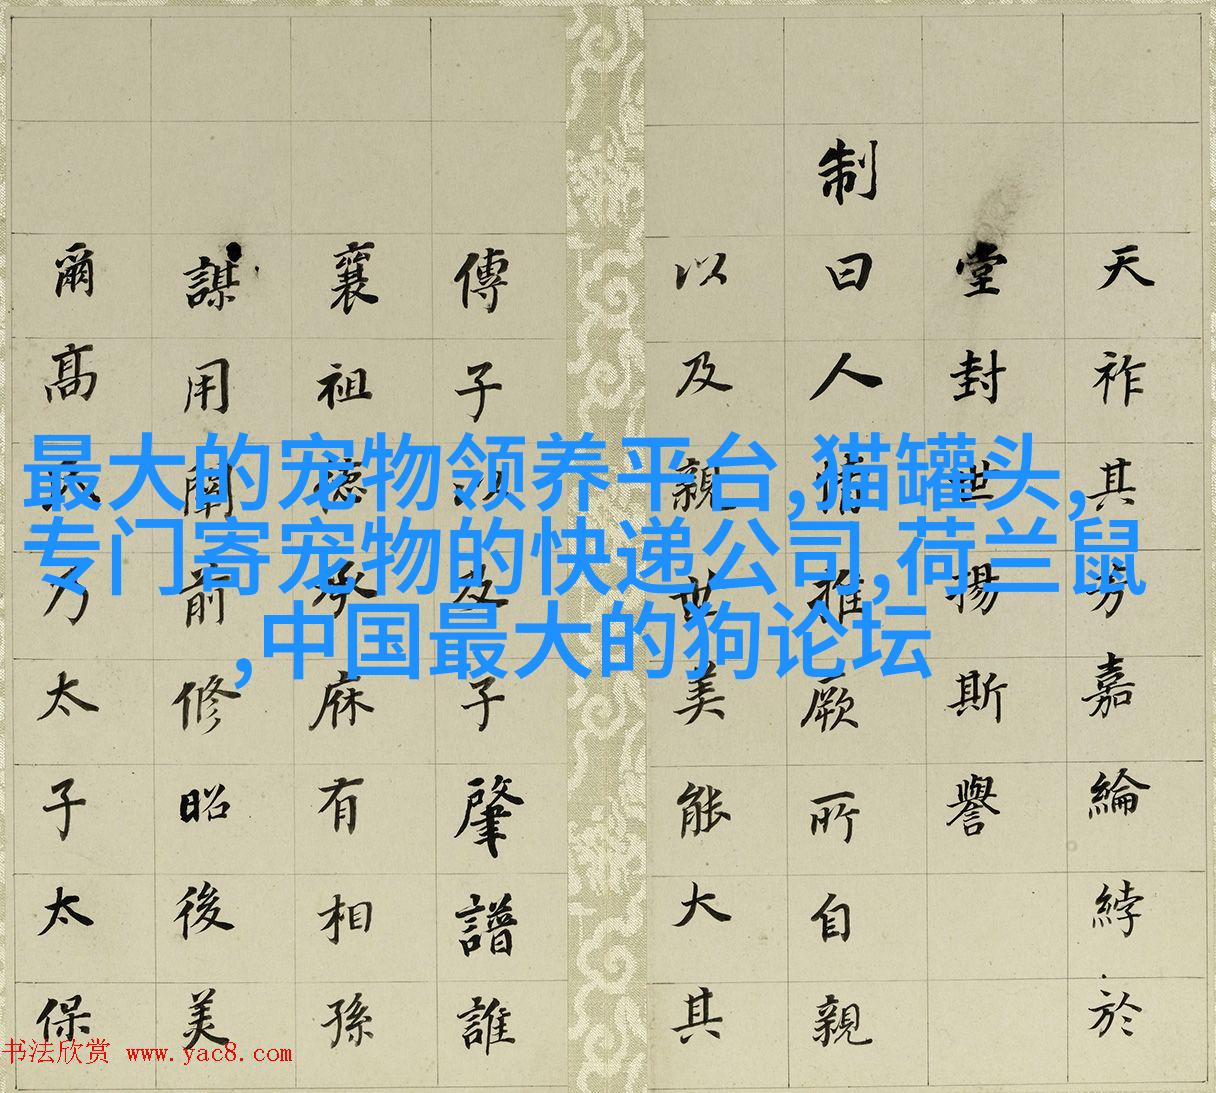 最大的宠物领养平台,猫罐头,
专门寄宠物的快递公司,荷兰鼠
,中国最大的狗论坛
天祚其芳嘉綸綍於
堂封世揚斯譽
制曰人情推厥所自親
以及親世美能大其
傳子以及子肇譜誰
襄祖德承庥有相孫
謀用闡前修昭後美
爾高乃太子太保
书法欣赏 www.yac8.com